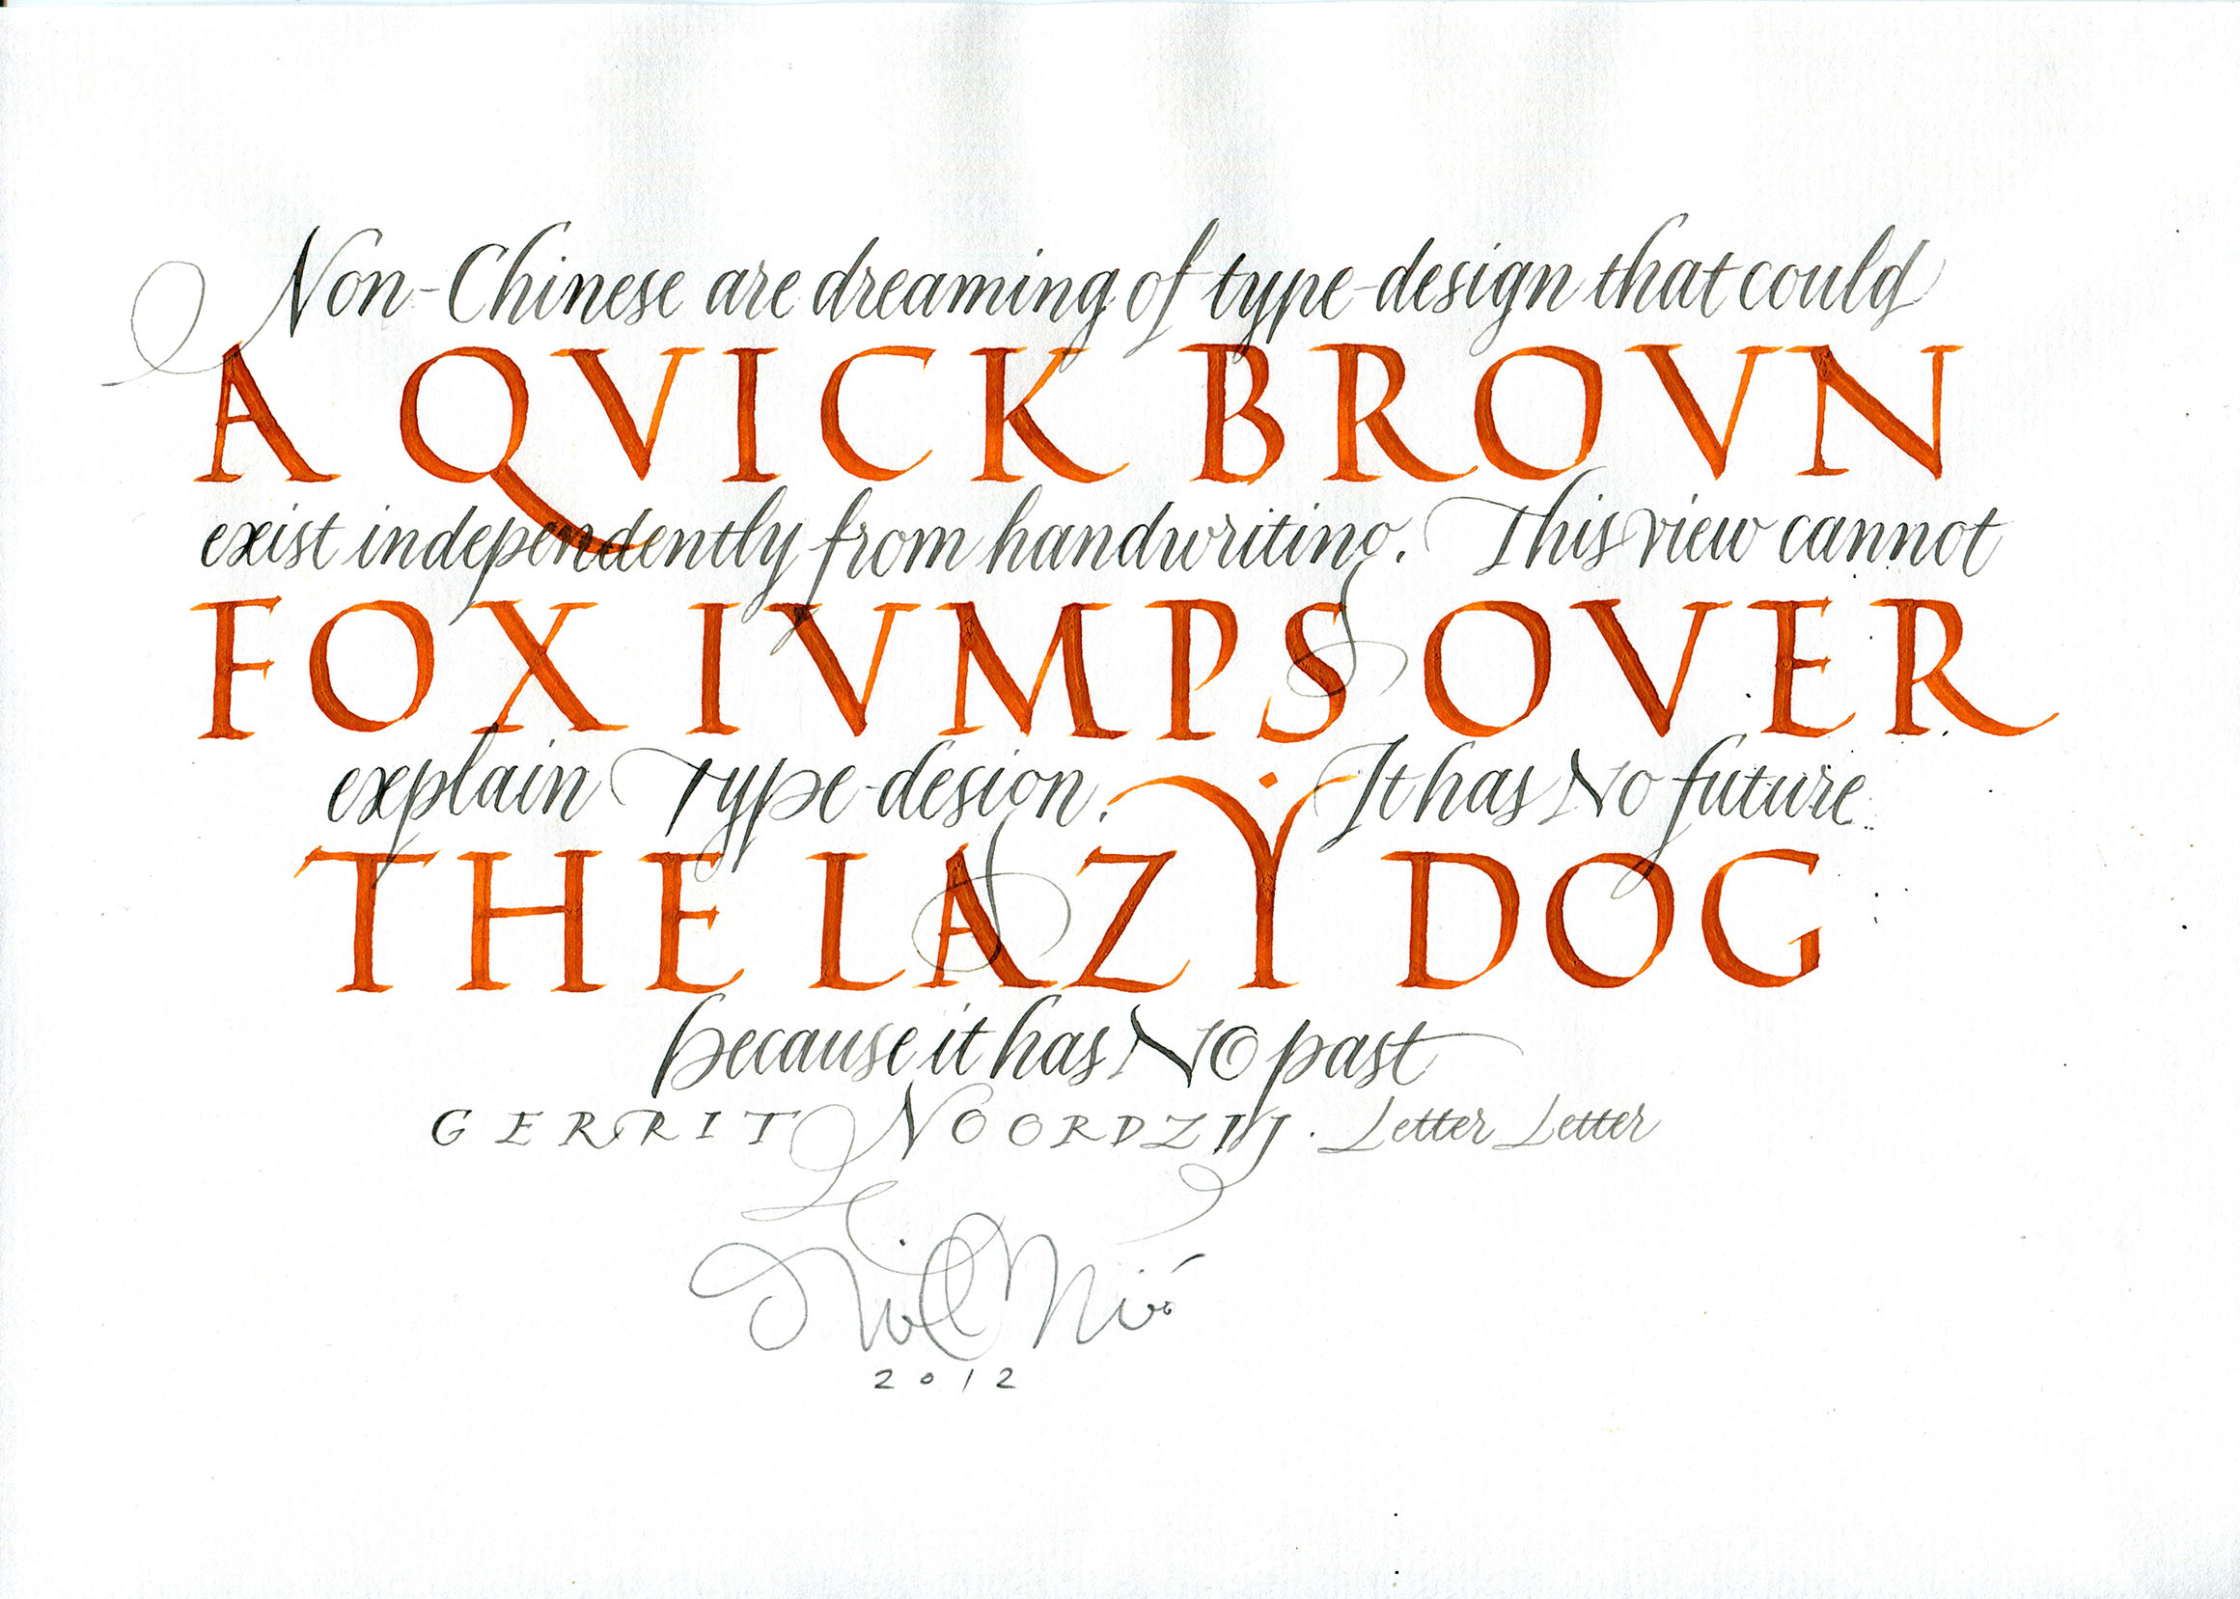 Non-Chinese are dreaming of type-design that could
A QVICK BROVN
exist independently from handwriting. This view cannot
FOX IVMPS OVER
explain Type-design. It has No future
THE LAZY DOG
because it has NO past
GERRIT NOORDZIJ. Letter Letter
2012